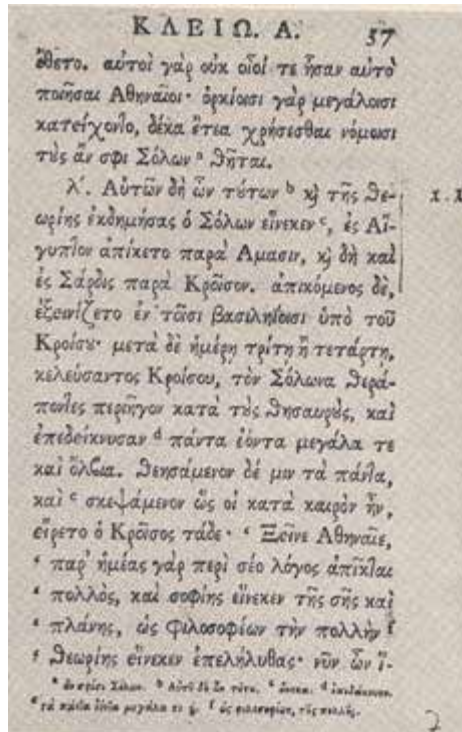 ΚΛΕΙΩ. Α. 57
ἔθετο. αὐτοὶ γὰρ οὐκ οἷοί τε ἦσαν αὐτὸ
ποιῆσαι Αθηναῖοι· ὁρκίοισι γὰρ μεγάλοισι
κατείχοντο, δέκα ἔτεα χρήσεσθαι νόμοισι
τοὺς ἄν σφι Σόλων ᵃ θῆται.
λ΄. Αὐτῶν δὴ ὦν τούτων ᵇ καὶ τῆς θε-
ωρίης ἐκδημήσας ὁ Σόλων εἵνεκεν ᶜ, ἐς Αἴ-
γυπτον ἀπίκετο παρὰ Αμασιν, καὶ δὴ καὶ
ἐς Σάρδις παρὰ Κροῖσον. ἀπικόμενος δὲ,
ἐξεινίζετο ἐν τοῖσι βασιληΐοισι ὑπὸ τοῦ
Κροίσου· μετὰ δὲ ἡμέρῃ τρίτῃ ἢ τετάρτῃ,
κελεύσαντος Κροίσου, τὸν Σόλωνα θερά-
ποντες περιῆγον κατὰ τοὺς θησαυροὺς, καὶ
ἐπεδείκνυσαν ᵈ πάντα ἐόντα μεγάλα τε
καὶ ὄλβια. θεησάμενον δέ μιν τὰ πάντα,
καὶ ᵉ σκεψάμενον ὥς οἱ κατὰ καιρὸν ἦν,
εἴρετο ὁ Κροῖσος τάδε· ‘ Ξεῖνε Αθηναῖε,
‘ παρ’ ἡμέας γὰρ περὶ σέο λόγος ἀπῖκται
‘ πολλὸς, καὶ σοφίης εἵνεκεν τῆς σῆς καὶ
‘ πλάνης, ὡς φιλοσοφέων τὴν πολλὴν ᶠ
‘ θεωρίης εἵνεκεν ἐπελήλυθας· νῦν ὦν ἵ-
ᵃ ἄν σφισι Σόλων. ᵇ Αὐτῶν δὲ ὦν τούτων. ᶜ ἕνεκα.
ᶠ ὡς φιλοσοφέων, τῆς πολλῆς.